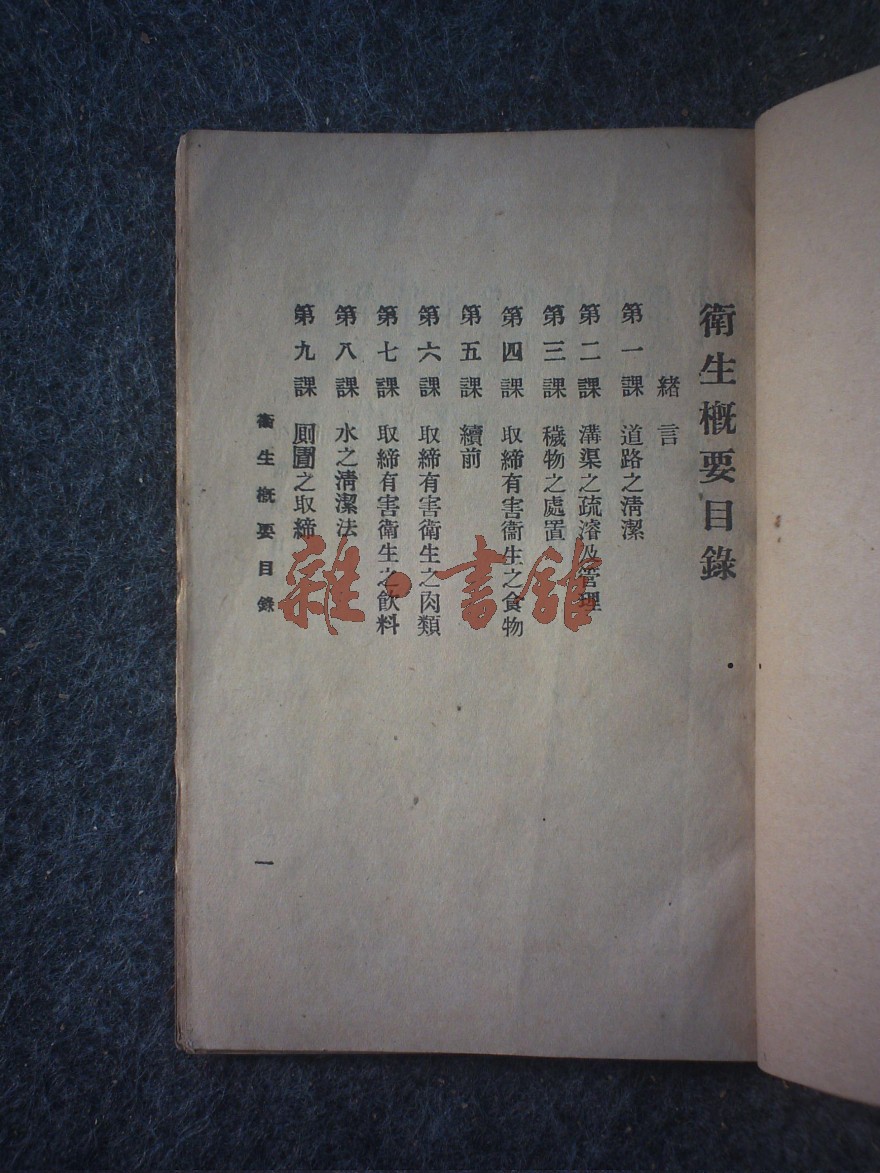 衛生概要目錄
緒言
第一課 道路之淸潔
第二課 溝渠之疏濬及管理
第三課 穢物之處置
第四課 取締有害衞生之食物
第五課 續前
第六課 取締有害衛生之肉類
第七課 取締有害衛生之飮料
第八課 水之淸潔法
第九課 厠圊之取締
衛生概要目錄
一
雜·書館